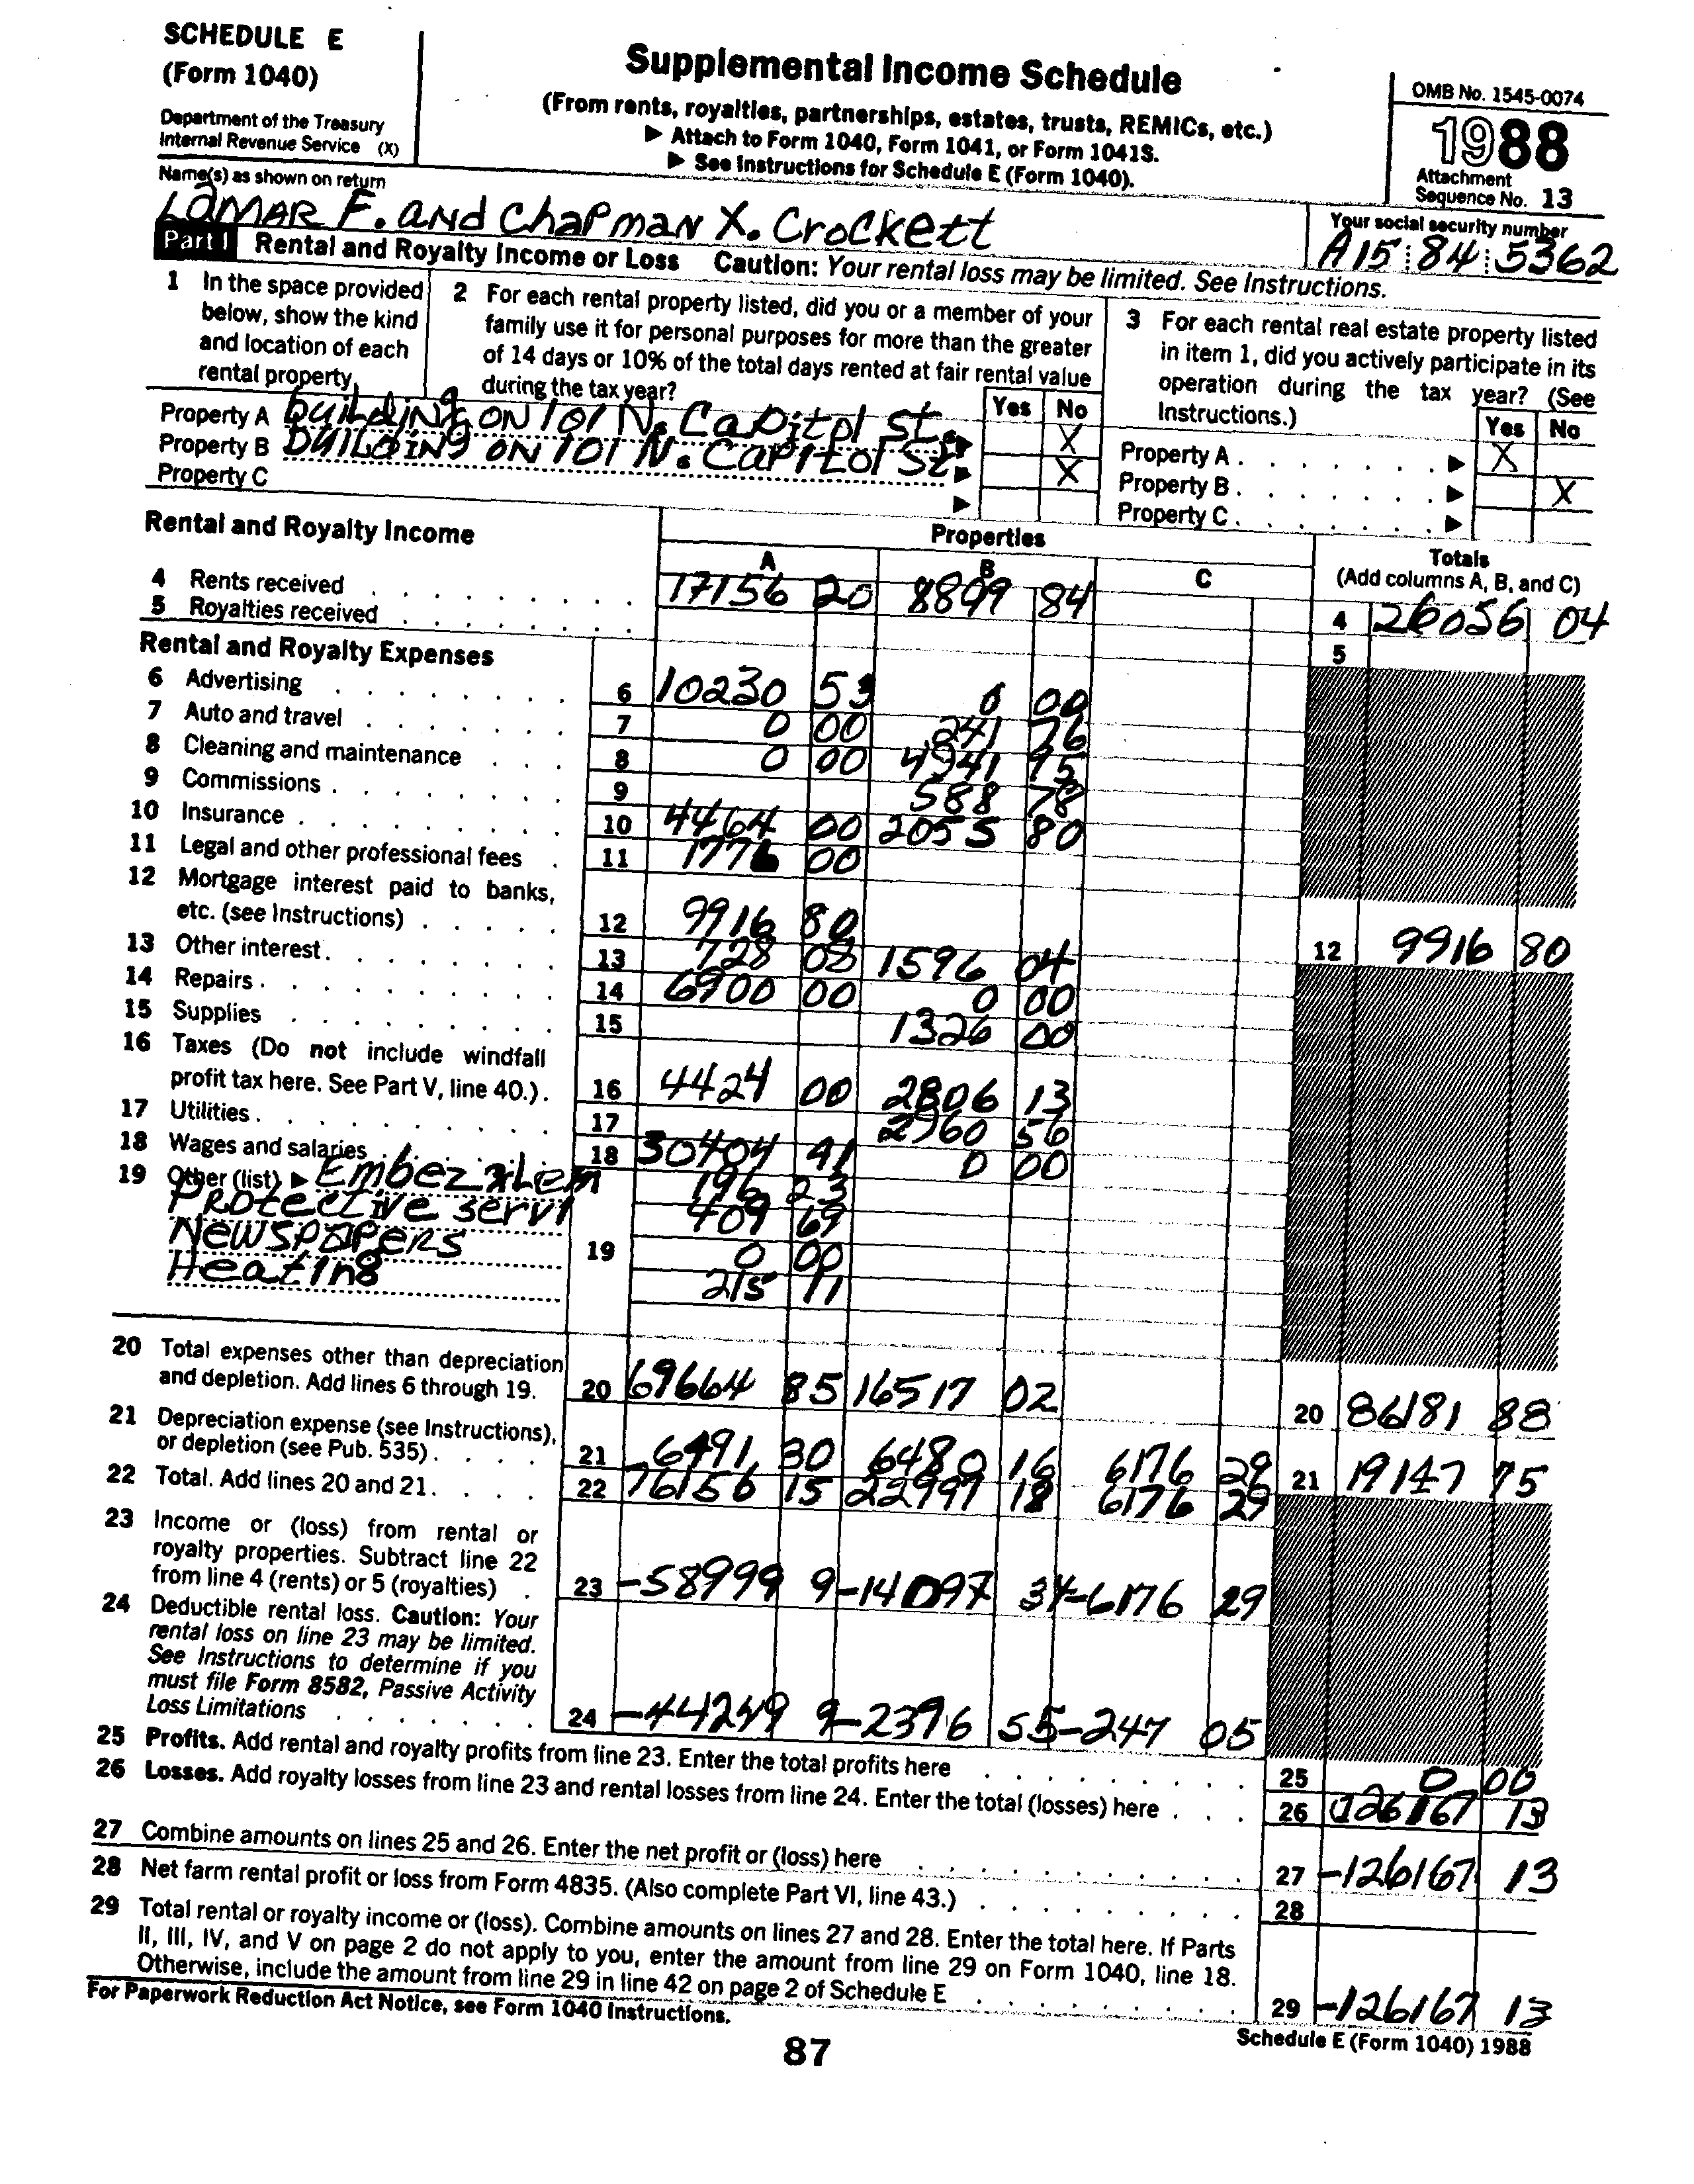 SCHEDULE E
(Form 1040)
Department of the Treasury
Internal Revenue Service (X)
Supplemental Income Schedule
(From rents, royalties, partnerships, estates, trusts, REMICs, etc.)
▶ Attach to Form 1040, Form 1041, or Form 1041S.
▶ See Instructions for Schedule E (Form 1040).
OMB No. 1545-0074
1988
Attachment
Sequence No. 13
Name(s) as shown on return
LaMAR F. aNd ChaPmaN X. CrocKett
Your social security number
A15 84 5362
Part I Rental and Royalty Income or Loss Caution: Your rental loss may be limited. See Instructions.
1 In the space provided
below, show the kind
and location of each
rental property.
2 For each rental property listed, did you or a member of your
family use it for personal purposes for more than the greater
of 14 days or 10% of the total days rented at fair rental value
during the tax year?
3 For each rental real estate property listed
in item 1, did you actively participate in its
operation during the tax year? (See
Instructions.)
Yes No
Yes No
Property A buiLdiNg ON 101 N. CaPitol St. ▶ X
Property B buiLdiNg ON 101 N. CaPitol St ▶ X
Property C ▶
Property A . . . . . . . ▶ X
Property B . . . . . . . ▶ X
Property C . . . . . . . ▶
Rental and Royalty Income
Properties
A B C
Totals
(Add columns A, B, and C)
4 Rents received 17156 20 8899 84 4 26056 04
5 Royalties received 5
Rental and Royalty Expenses
6 Advertising 6 10230 53 0 00
7 Auto and travel 7 0 00 241 76
8 Cleaning and maintenance 8 0 00 4941 95
9 Commissions 9 588 78
10 Insurance 10 4464 00 2055 80
11 Legal and other professional fees 11 1776 00
12 Mortgage interest paid to banks,
etc. (see Instructions) 12 9916 80 12 9916 80
13 Other interest 13 728 08 1596 04
14 Repairs 14 6900 00 0 00
15 Supplies 15 1326 00
16 Taxes (Do not include windfall
profit tax here. See Part V, line 40.) 16 4424 00 2806 13
17 Utilities 17 2960 56
18 Wages and salaries 18 30404 41 0 00
19 Other (list) ▶ Embezzlem 196 23
Protective servi 409 69
Newspapers 19 0 00
Heating 215 11
20 Total expenses other than depreciation
and depletion. Add lines 6 through 19. 20 69664 85 16517 02 20 86181 88
21 Depreciation expense (see Instructions),
or depletion (see Pub. 535) 21 6491 30 6480 16 6176 29 21 19147 75
22 Total. Add lines 20 and 21 22 76156 15 22997 18 6176 29
23 Income or (loss) from rental or
royalty properties. Subtract line 22
from line 4 (rents) or 5 (royalties) 23 -58999 9 -14097 34 -6176 29
24 Deductible rental loss. Caution: Your
rental loss on line 23 may be limited.
See Instructions to determine if you
must file Form 8582, Passive Activity
Loss Limitations 24 -44249 9 -2396 55 -247 05
25 Profits. Add rental and royalty profits from line 23. Enter the total profits here 25 0 00
26 Losses. Add royalty losses from line 23 and rental losses from line 24. Enter the total (losses) here 26 (126167 13
27 Combine amounts on lines 25 and 26. Enter the net profit or (loss) here 27 -126167 13
28 Net farm rental profit or loss from Form 4835. (Also complete Part VI, line 43.) 28
29 Total rental or royalty income or (loss). Combine amounts on lines 27 and 28. Enter the total here. If Parts
II, III, IV, and V on page 2 do not apply to you, enter the amount from line 29 on Form 1040, line 18.
Otherwise, include the amount from line 29 in line 42 on page 2 of Schedule E 29 -126167 13
For Paperwork Reduction Act Notice, see Form 1040 Instructions.
Schedule E (Form 1040) 1988
87